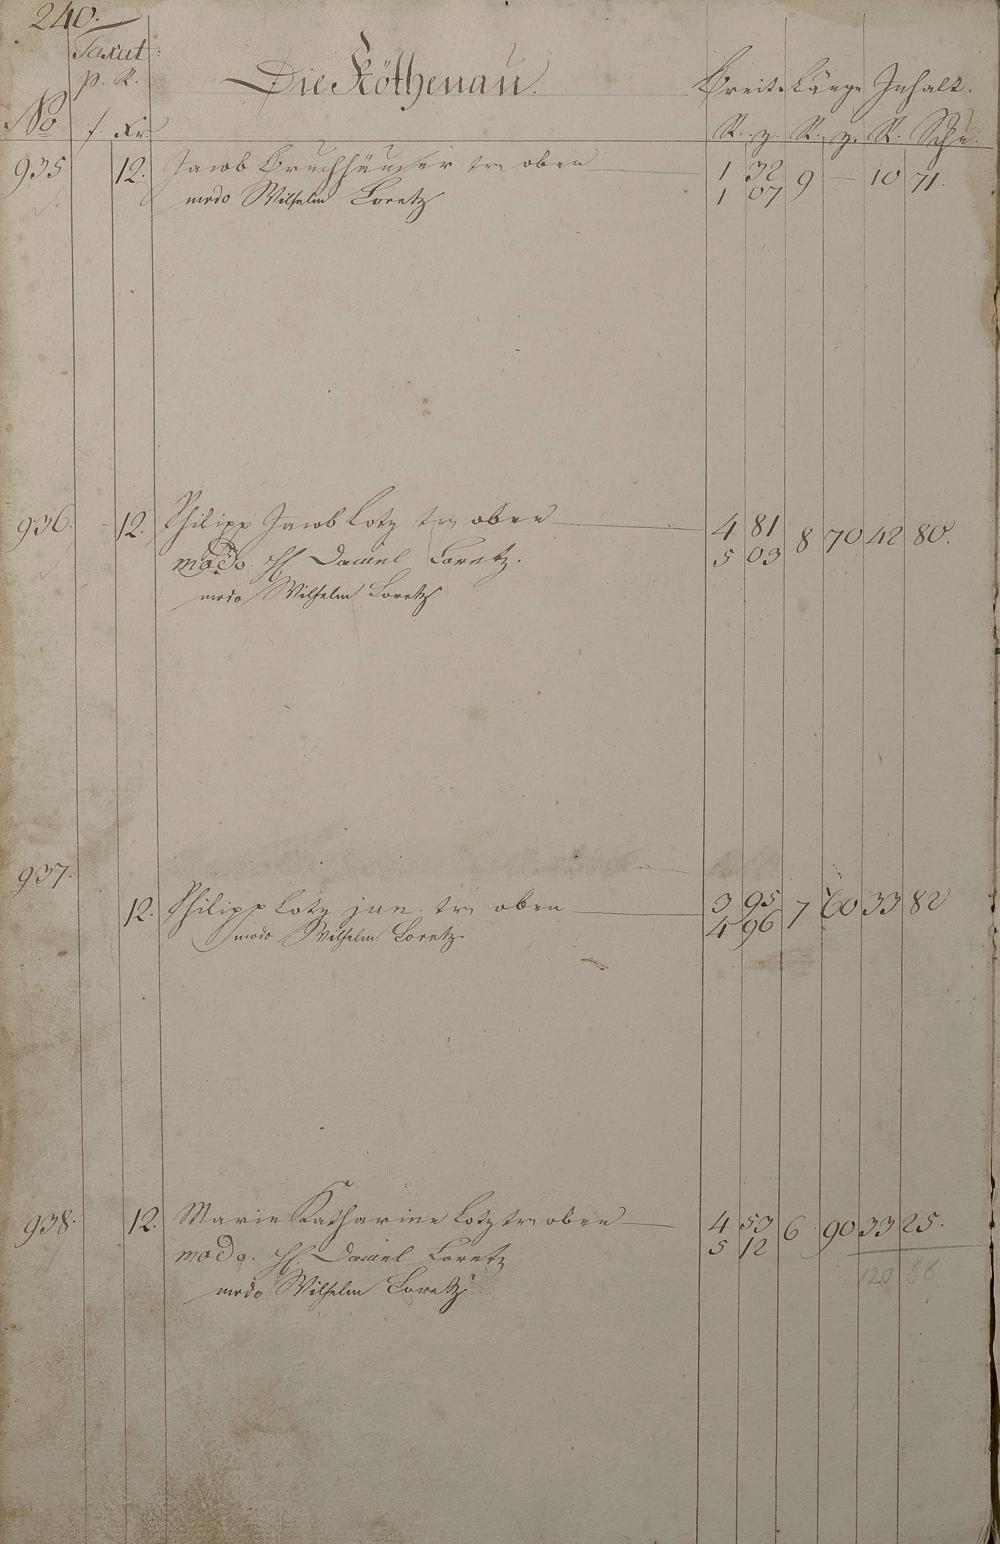 240.
Taxat
p. R.
Die Köthenau.
Breite Länge Inhalt.
No. f. Xr R. z. R. z. R. Schu
935 12. Jacob Bruchhäuser tr. oben 1 32 9 — 10 71.
modo Wilhelm Loretz 1 07
936. 12. Philipp Jacob Lotz tr. oben 4 81 8 70 42 80.
modo. H. Daniel Loretz. 5 03
modo Wilhelm Loretz
937.
12. Philipp Lotz jun. tr. oben 3 95 7 60 33 82
modo Wilhelm Loretz 4 96
938. 12. Marie Katharine Lotz tr. oben 4 53 6 90 33 25.
modo. H. Daniel Loretz 5 12
modo Wilhelm Loretz 120 58